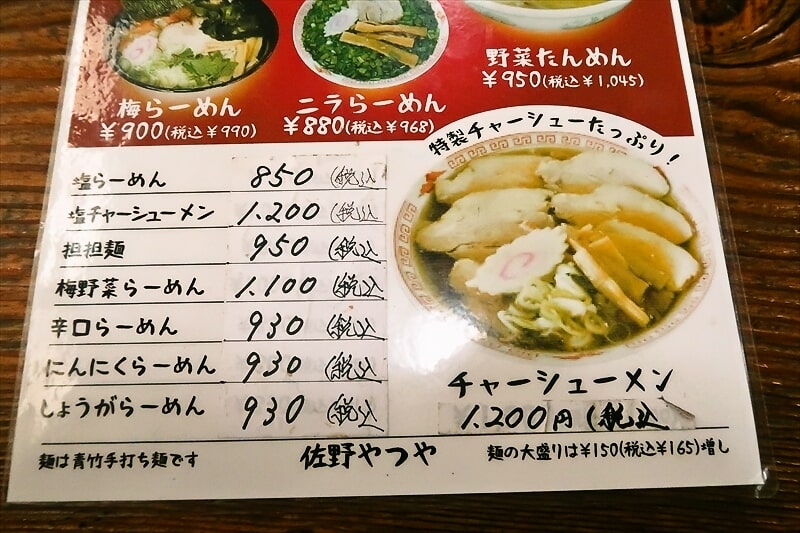 野菜たんめん
¥950(税込¥1,045)
梅らーめん
¥900(税込¥990)
ニラらーめん
¥880(税込¥968)
特製チャーシューたっぷり!
塩らーめん 850 (税込
塩チャーシューメン 1.200 (税込
担担麺 950 (税込
梅野菜らーめん 1.100 (税込
辛口らーめん 930 (税込
にんにくらーめん 930 (税込
しょうがらーめん 930 (税込
チャーシューメン
1.200円 (税込
麺は青竹手打ち麺です
佐野やつや
麺の大盛りは¥150(税込¥165)増し